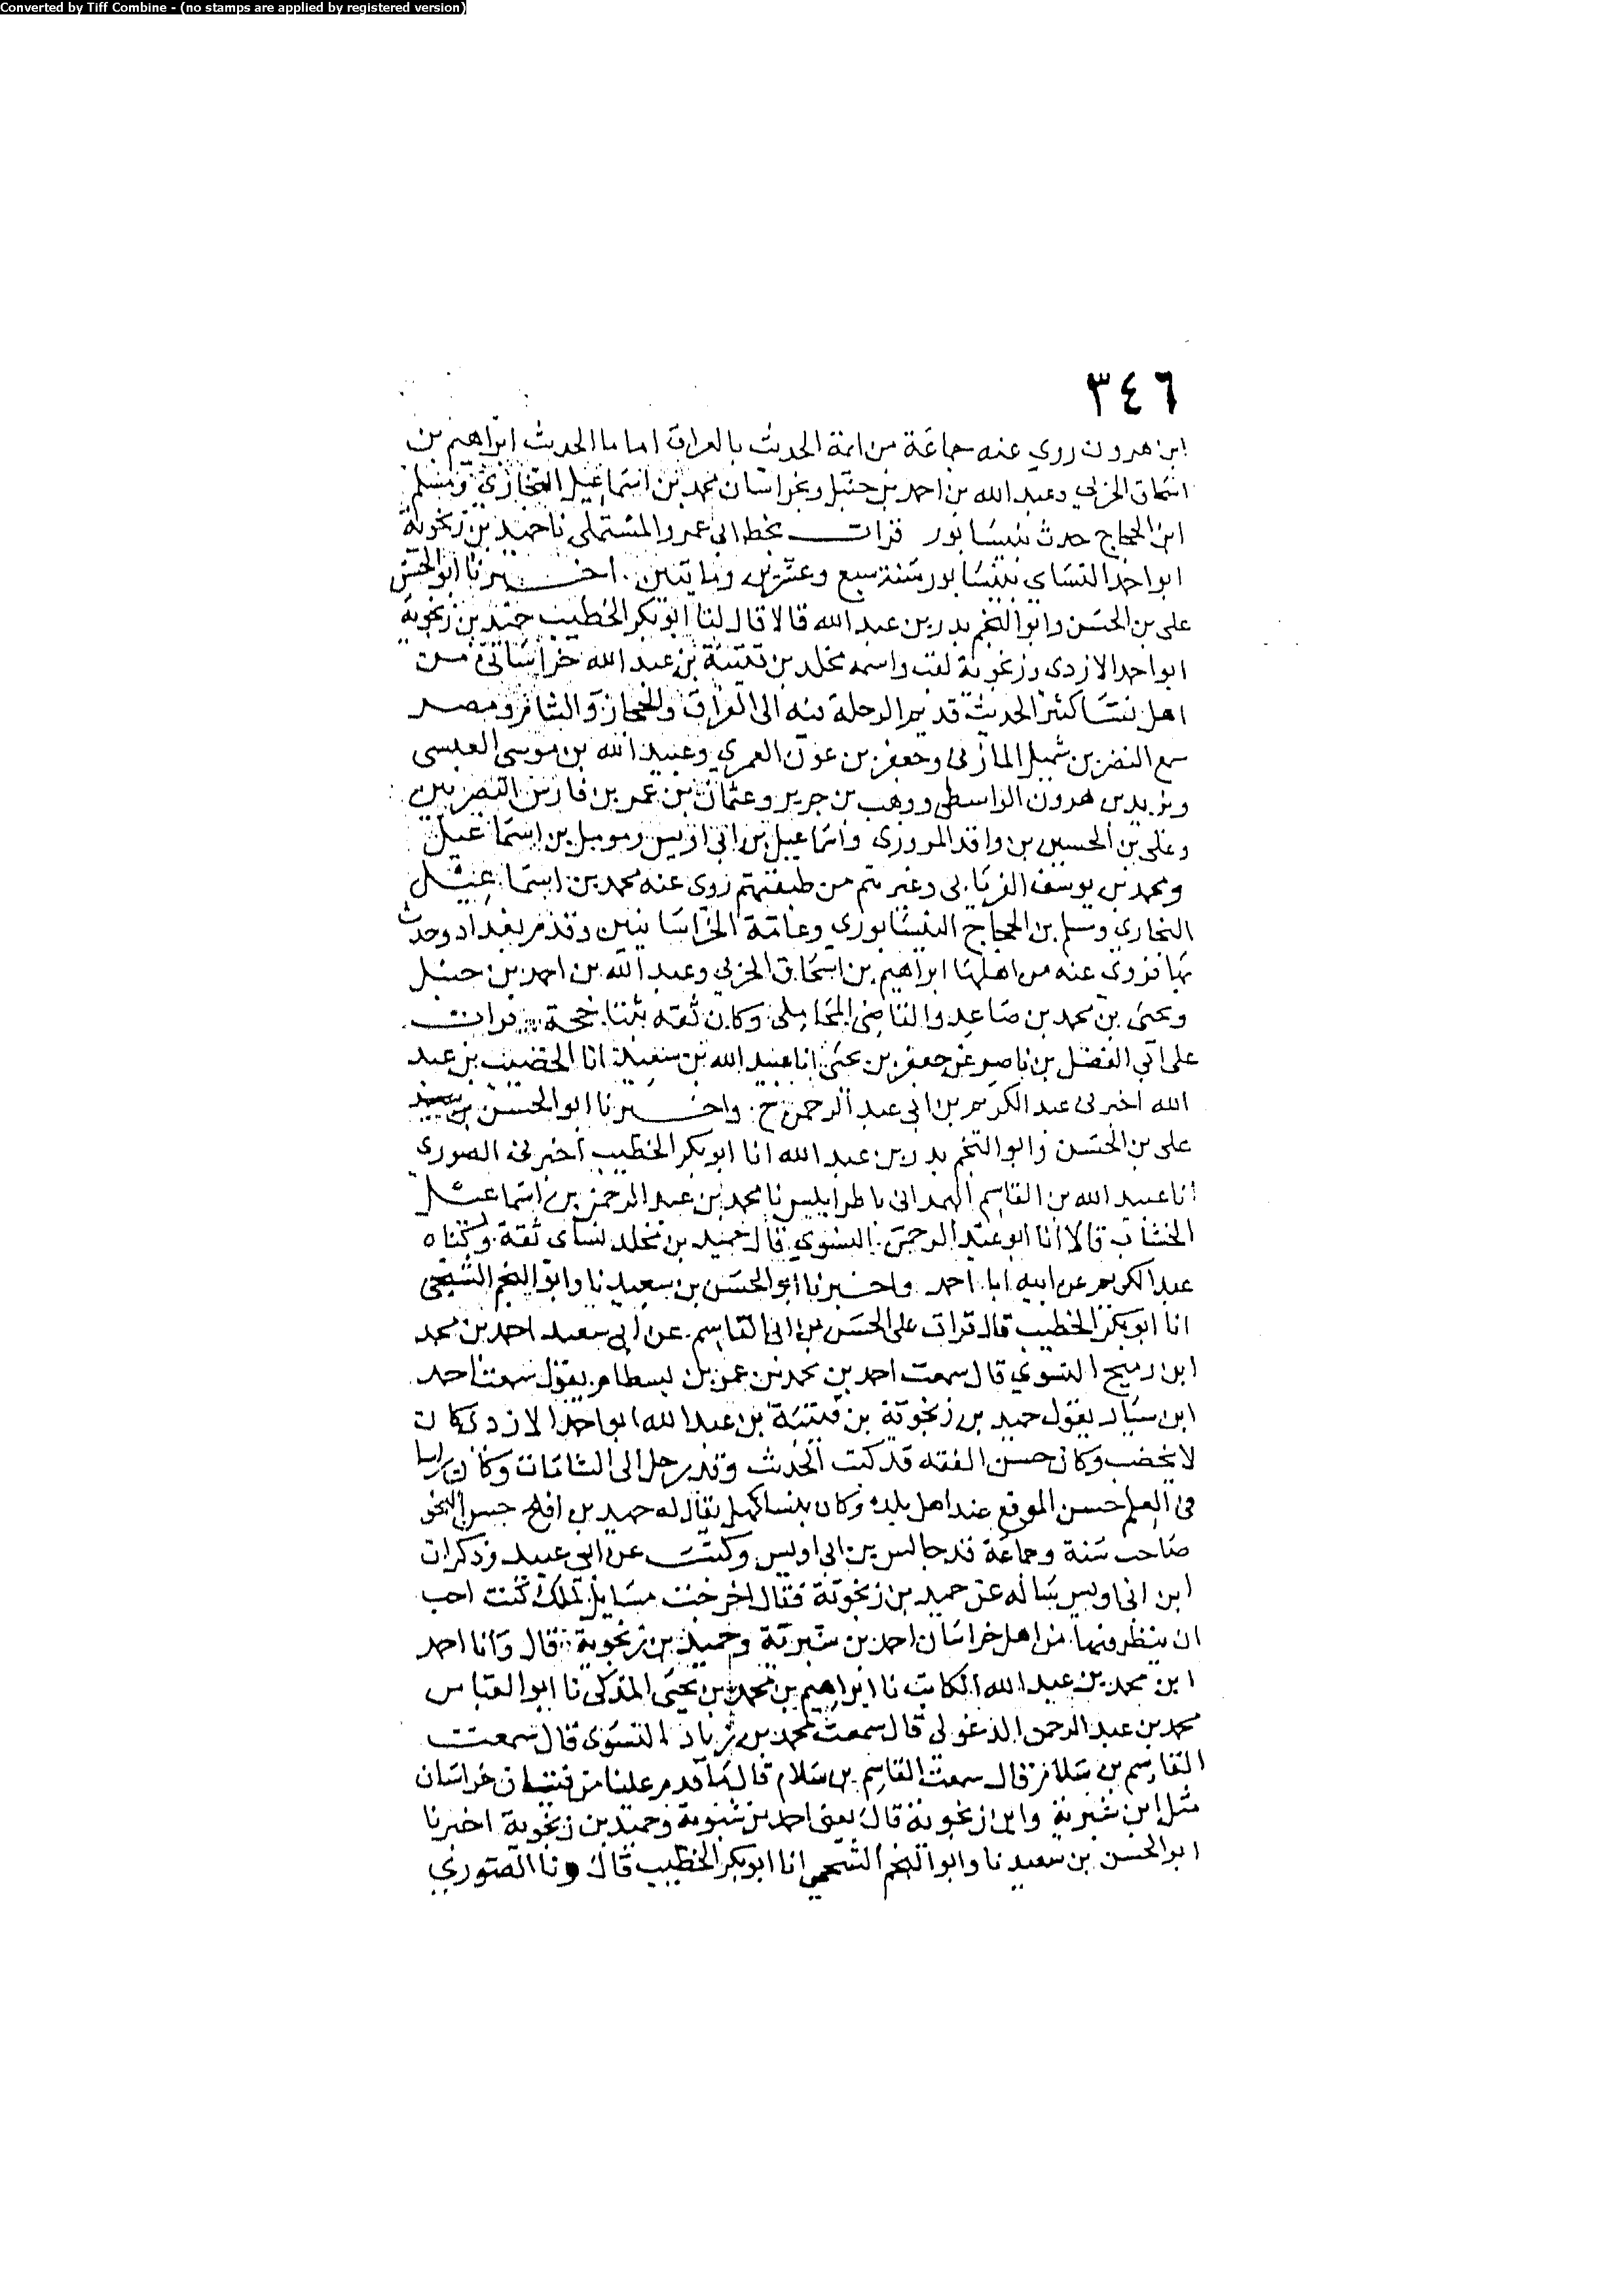 Converted by Tiff Combine - (no stamps are applied by registered version)
٣٤٦
ابن هرون روي عنه جماعة من ائمة الحديث بالعراق اماما الحديث ابراهيم بن
اسحاق الحربي وعبد الله بن احمد بن حنبل وبخراسان محمد بن اسماعيل البخاري ومسلم
ابن الحجاج حدث بنيسابور قرات بخط ابي عمرو المستملي نا حميد بن زنجوية
ابو احمد النساي بنيسابور سنة سبع وعشرين ومايتين . اخبرنا ابو الحسن
على بن الحسن وابو النجم بدر بن عبد الله قالا قال لنا ابو بكر الخطيب حميد بن زنجوية
ابو احمد الازدى وزنجوية لقب واسمه مخلد بن قتيبة بن عبد الله خراساني من
اهل نسا كثير الحديث قديم الرحلة فيه الى العراق والحجاز والشام ومصر
سمع النضر بن شميل المازني وجعفر بن عون العمري وعبيد الله بن موسى العبسى
ويزيد بن هرون الواسطي ووهب بن جرير وعثمان بن عمر بن فارس البصريين
وعلى بن الحسين بن واقد المروزى واسماعيل بن ابي اويس ومومل بن اسماعيل
ومحمد بن يوسف الفريابي وغيرهم من طبقتهم روى عنه محمد بن اسماعيل
البخاري ومسلم بن الحجاج النيسابوري وعامة الخراسانيين وقدم بغداد وحدث
بها فروى عنه من اهلها ابراهيم بن اسحاق الحربي وعبد الله بن احمد بن حنبل
ويحيى بن محمد بن صاعد والقاضي المحاملي وكان ثقة ثبتا حجة قرات
على ابي الفضل بن ناصر عن جعفر بن يحيى انا عبيد الله بن سعيد انا الخصيب بن عبد
الله اخبرني عبد الكريم بن ابي عبد الرحمن ح . واخبرنا ابو الحسن بن سعيد
على بن الحسن وابو النجم بدر بن عبد الله انا ابو بكر الخطيب اخبرني الصورى
انا عبيد الله بن القاسم الهمداني باطرابلس نا محمد بن عبد الرحمن بن اسماعيل
الخشاب قالا انا ابو عبد الرحمن النسوي قال حميد بن مخلد نساى ثقة وكناه
عبد الكريم عن ابيه ابا احمد واخبرنا ابو الحسن بن سعيد نا وابو النجم الشيحى
انا ابو بكر الخطيب قال قرات على الحسن بن ابي القاسم عن ابي سعيد احمد بن محمد
ابن رميح النسوي قال سمعت احمد بن محمد بن عمر بن بسطام يقول سمعت احمد
ابن سيار يقول حميد بن زنجوية بن قتيبة بن عبد الله ابو احمد الازدى كان
لا يخضب وكان حسن الفقه قد كتب الحديث وقد رحل الى الشامات وكان راسا
في العلم حسن الموقع عند اهل بلده وكان بنسا كهل يقال له حميد بن افلح حسن النحو
صاحب سنة وجماعة قد جالس بن ابي اويس وكتب عن ابي عبيد وذكر ان
ابن ابي اويس ساله عن حميد بن زنجوية فقال اخرجت مسايل لملك كنت احب
ان ينظر فيها من اهل خراسان احمد بن شبوية وحميد بن زنجوية قال وانا احمد
ابن محمد بن عبد الله الكاتب نا ابراهيم بن محمد بن يحيى المزكي نا ابو العباس
محمد بن عبد الرحمن الدغولي قال سمعت محمد بن زياد النسوى قال سمعت
القاسم بن سلام قال سمعت القاسم بن سلام قال ما قدم علينا من فتيان خراسان
مثل ابن شبوية وابن زنجوية قال يعني احمد بن شبوية وحميد بن زنجوية اخبرنا
ابو الحسن بن سعيد نا وابو النجم الشيحي انا ابو بكر الخطيب قال ونا الصوري